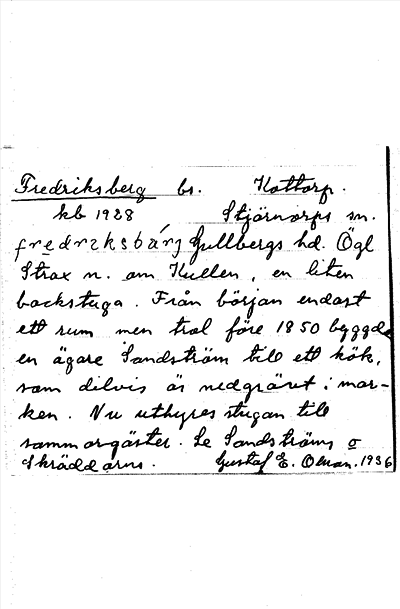 Fredriksberg bs. Kottorp.
kb 1928 Stjärnorps sn.
fredrɩksbárj Gullbergs hd. Ögl
Strax n. om Kullen, en liten
backstuga. Från början endast
ett rum men trol före 1850 byggde
en ägare Sandström till ett kök,
som delvis är nedgrävt i mar-
ken. Nu uthyres stugan till
sommargäster. Se Sandströms o
Skräddarns. Gustaf E. Olman. 1936